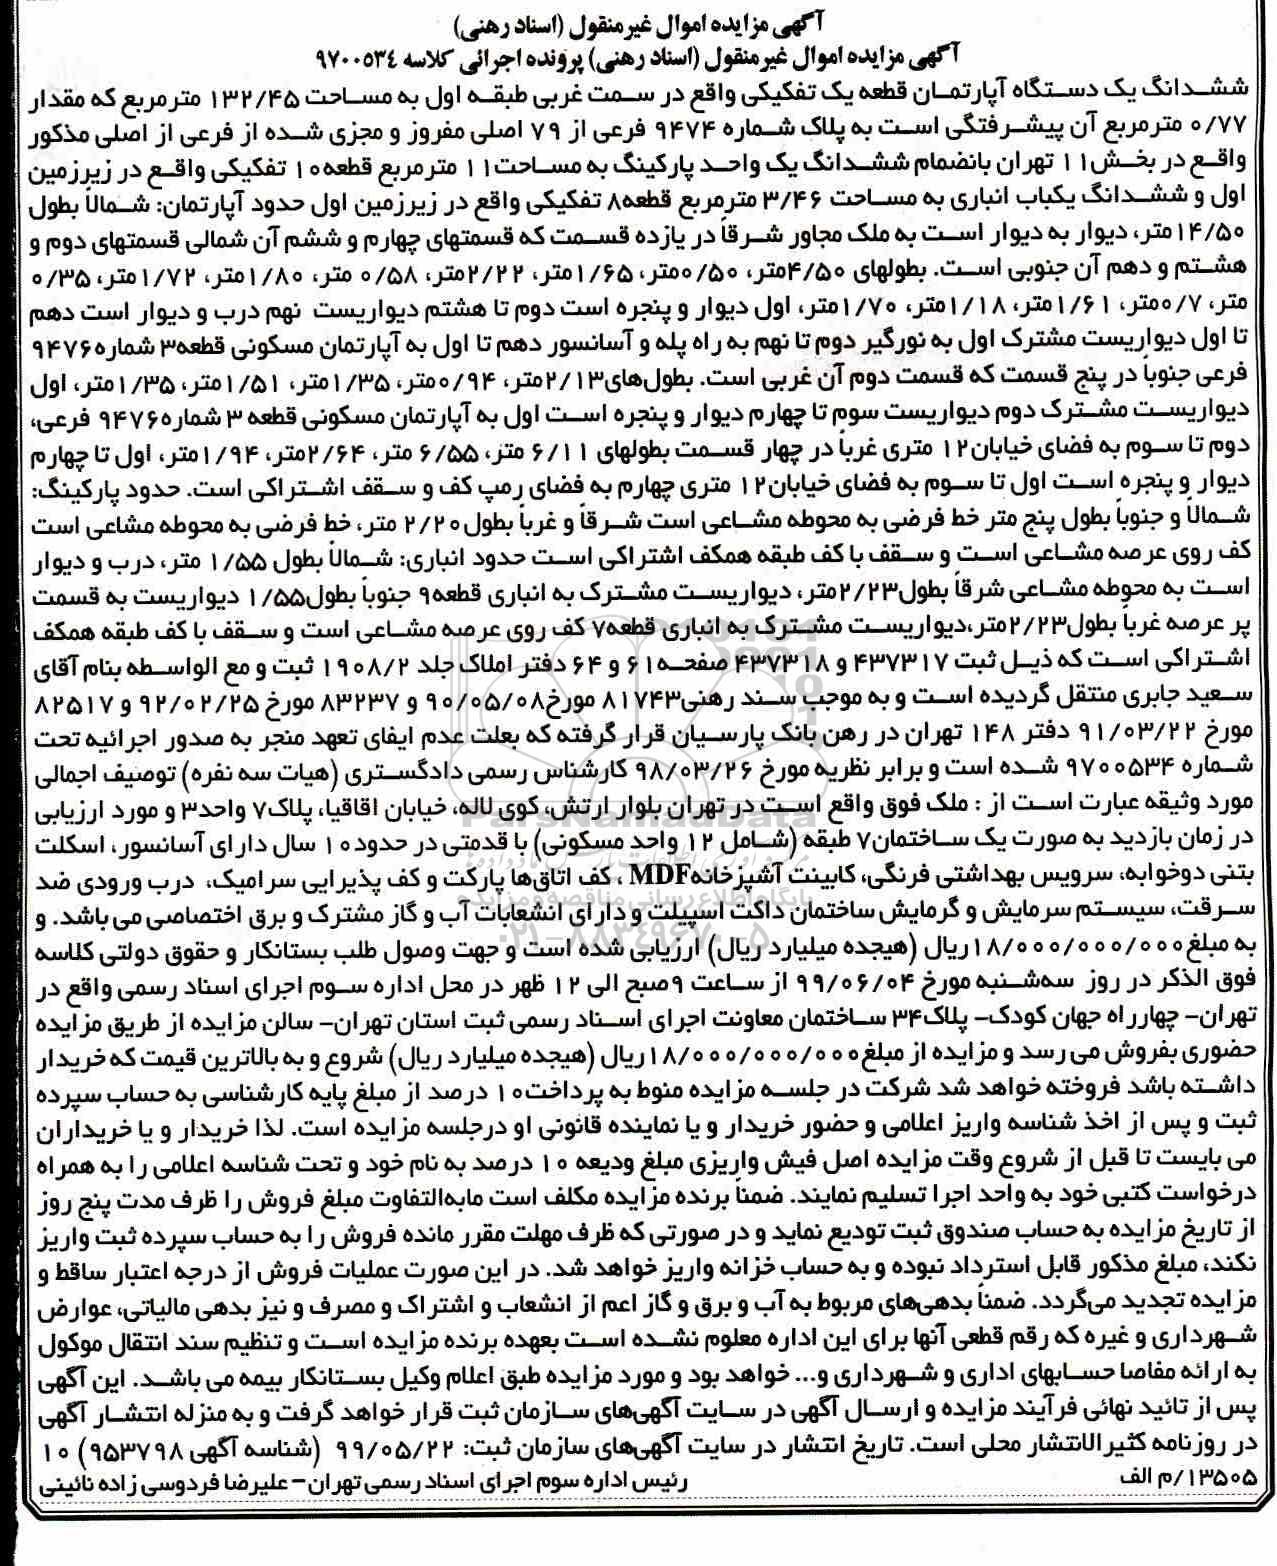 آگهی مزایده اموال غیرمنقول (اسناد رهنی)
آگهی مزایده اموال غیرمنقول (اسناد رهنی) پرونده اجرائی کلاسه ۹۷۰۰۵۳۴
ششدانگ یک دستگاه آپارتمان قطعه یک تفکیکی واقع در سمت غربی طبقه اول به مساحت ۱۳۲/۴۵ مترمربع که مقدار
۰/۷۷ مترمربع آن پیشرفتگی است به پلاک شماره ۹۴۷۴ فرعی از ۷۹ اصلی مفروز و مجزی شده از فرعی از اصلی مذکور
واقع در بخش۱۱ تهران بانضمام ششدانگ یک واحد پارکینگ به مساحت۱۱ مترمربع قطعه۱۰ تفکیکی واقع در زیرزمین
اول و ششدانگ یکباب انباری به مساحت ۳/۴۶ مترمربع قطعه۸ تفکیکی واقع در زیرزمین اول حدود آپارتمان: شمالاً بطول
۱۴/۵۰متر، دیوار به دیوار است به ملک مجاور شرقاً در یازده قسمت که قسمتهای چهارم و ششم آن شمالی قسمتهای دوم و
هشتم و دهم آن جنوبی است. بطولهای ۴/۵۰متر، ۰/۵۰متر، ۱/۶۵متر، ۲/۲۲متر، ۰/۵۸ متر، ۱/۸۰متر، ۱/۷۲متر، ۰/۳۵
متر، ۰/۷متر، ۱/۶۱متر، ۱/۱۸متر، ۱/۷۰متر، اول دیوار و پنجره است دوم تا هشتم دیواریست نهم درب و دیوار است دهم
تا اول دیواریست مشترک اول به نورگیر دوم تا نهم به راه پله و آسانسور دهم تا اول به آپارتمان مسکونی قطعه۳ شماره۹۴۷۶
فرعی جنوباً در پنج قسمت که قسمت دوم آن غربی است. بطول‌های۲/۱۳متر، ۰/۹۴متر، ۱/۳۵متر، ۱/۵۱متر، ۱/۳۵متر، اول
دیواریست مشترک دوم دیواریست سوم تا چهارم دیوار و پنجره است اول به آپارتمان مسکونی قطعه ۳ شماره۹۴۷۶ فرعی،
دوم تا سوم به فضای خیابان۱۲ متری غرباً در چهار قسمت بطولهای ۶/۱۱ متر، ۶/۵۵ متر، ۲/۶۴متر، ۱/۹۴متر، اول تا چهارم
دیوار و پنجره است اول تا سوم به فضای خیابان۱۲ متری چهارم به فضای رمپ کف و سقف اشتراکی است. حدود پارکینگ:
شمالاً و جنوباً بطول پنج متر خط فرضی به محوطه مشاعی است شرقاً و غرباً بطول۲/۲۰ متر، خط فرضی به محوطه مشاعی است
کف روی عرصه مشاعی است و سقف با کف طبقه همکف اشتراکی است حدود انباری: شمالاً بطول ۱/۵۵ متر، درب و دیوار
است به محوطه مشاعی شرقاً بطول۲/۲۳متر، دیواریست مشترک به انباری قطعه۹ جنوباً بطول۱/۵۵ دیواریست به قسمت
پر عرصه غرباً بطول۲/۲۳متر،دیواریست مشترک به انباری قطعه۷ کف روی عرصه مشاعی است و سقف با کف طبقه همکف
اشتراکی است که ذیل ثبت ۴۳۷۳۱۷ و ۴۳۷۳۱۸ صفحه۶۱ و ۶۴ دفتر املاک جلد ۱۹۰۸/۲ ثبت و مع الواسطه بنام آقای
سعید جابری منتقل گردیده است و به موجب سند رهنی۸۱۷۴۳ مورخ۹۰/۰۵/۰۸ و ۸۳۲۳۷ مورخ ۹۲/۰۲/۲۵ و ۸۲۵۱۷
مورخ ۹۱/۰۳/۲۲ دفتر ۱۴۸ تهران در رهن بانک پارسیان قرار گرفته که بعلت عدم ایفای تعهد منجر به صدور اجرائیه تحت
شماره ۹۷۰۰۵۳۴ شده است و برابر نظریه مورخ ۹۸/۰۳/۲۶ کارشناس رسمی دادگستری (هیات سه نفره) توصیف اجمالی
مورد وثیقه عبارت است از : ملک فوق واقع است در تهران بلوار ارتش، کوی لاله، خیابان اقاقیا، پلاک۷ واحد۳ و مورد ارزیابی
در زمان بازدید به صورت یک ساختمان۷ طبقه (شامل ۱۲ واحد مسکونی) با قدمتی در حدود۱۰ سال دارای آسانسور، اسکلت
بتنی دوخوابه، سرویس بهداشتی فرنگی، کابینت آشپزخانهMDF ، کف اتاق‌ها پارکت و کف پذیرایی سرامیک، درب ورودی ضد
سرقت، سیستم سرمایش و گرمایش ساختمان داکت اسپیلت و دارای انشعابات آب و گاز مشترک و برق اختصاصی می باشد. و
به مبلغ۱۸/۰۰۰/۰۰۰/۰۰۰ریال (هیجده میلیارد ریال) ارزیابی شده است و جهت وصول طلب بستانکار و حقوق دولتی کلاسه
فوق الذکر در روز سه‌شنبه مورخ ۹۹/۰۶/۰۴ از ساعت ۹صبح الی ۱۲ ظهر در محل اداره سوم اجرای اسناد رسمی واقع در
تهران- چهارراه جهان کودک- پلاک۳۴ ساختمان معاونت اجرای اسناد رسمی ثبت استان تهران- سالن مزایده از طریق مزایده
حضوری بفروش می رسد و مزایده از مبلغ۱۸/۰۰۰/۰۰۰/۰۰۰ریال (هیجده میلیارد ریال) شروع و به بالاترین قیمت که خریدار
داشته باشد فروخته خواهد شد شرکت در جلسه مزایده منوط به پرداخت۱۰ درصد از مبلغ پایه کارشناسی به حساب سپرده
ثبت و پس از اخذ شناسه واریز اعلامی و حضور خریدار و یا نماینده قانونی او درجلسه مزایده است. لذا خریدار و یا خریداران
می بایست تا قبل از شروع وقت مزایده اصل فیش واریزی مبلغ ودیعه ۱۰ درصد به نام خود و تحت شناسه اعلامی را به همراه
درخواست کتبی خود به واحد اجرا تسلیم نمایند. ضمناً برنده مزایده مکلف است مابه‌التفاوت مبلغ فروش را ظرف مدت پنج روز
از تاریخ مزایده به حساب صندوق ثبت تودیع نماید و در صورتی که ظرف مهلت مقرر مانده فروش را به حساب سپرده ثبت واریز
نکند، مبلغ مذکور قابل استرداد نبوده و به حساب خزانه واریز خواهد شد. در این صورت عملیات فروش از درجه اعتبار ساقط و
مزایده تجدید می‌گردد. ضمناً بدهی‌های مربوط به آب و برق و گاز اعم از انشعاب و اشتراک و مصرف و نیز بدهی مالیاتی، عوارض
شهرداری و غیره که رقم قطعی آنها برای این اداره معلوم نشده است بعهده برنده مزایده است و تنظیم سند انتقال موکول
به ارائه مفاصا حسابهای اداری و شهرداری و... خواهد بود و مورد مزایده طبق اعلام وکیل بستانکار بیمه می باشد. این آگهی
پس از تائید نهائی فرآیند مزایده و ارسال آگهی در سایت آگهی‌های سازمان ثبت قرار خواهد گرفت و به منزله انتشار آگهی
در روزنامه کثیرالانتشار محلی است. تاریخ انتشار در سایت آگهی‌های سازمان ثبت: ۹۹/۰۵/۲۲ (شناسه آگهی ۹۵۳۷۹۸) ۱۰
۱۳۵۰۵/م الف رئیس اداره سوم اجرای اسناد رسمی تهران- علیرضا فردوسی زاده نائینی
ParsNamadData
پایگاه اطلاع رسانی مناقصه و مزایده
۰۲۱-۸۸۳۴۹۶۷۰-۵